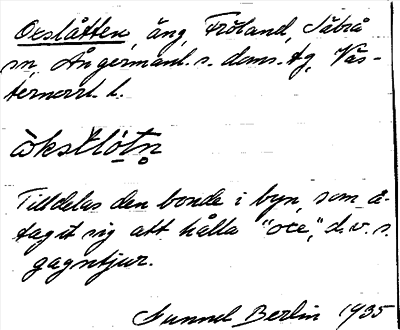 Oxslåtten, äng, Fröland, Säbrå
sn, Ångermanl. s. doms. tg, Väs-
ternorrl. l.
òkstlótn
Tilldelas den bonde i byn, som å-
tagit sig att hålla "oxe", d.v.s.
gagntjur.
Gunnel Berlin 1935